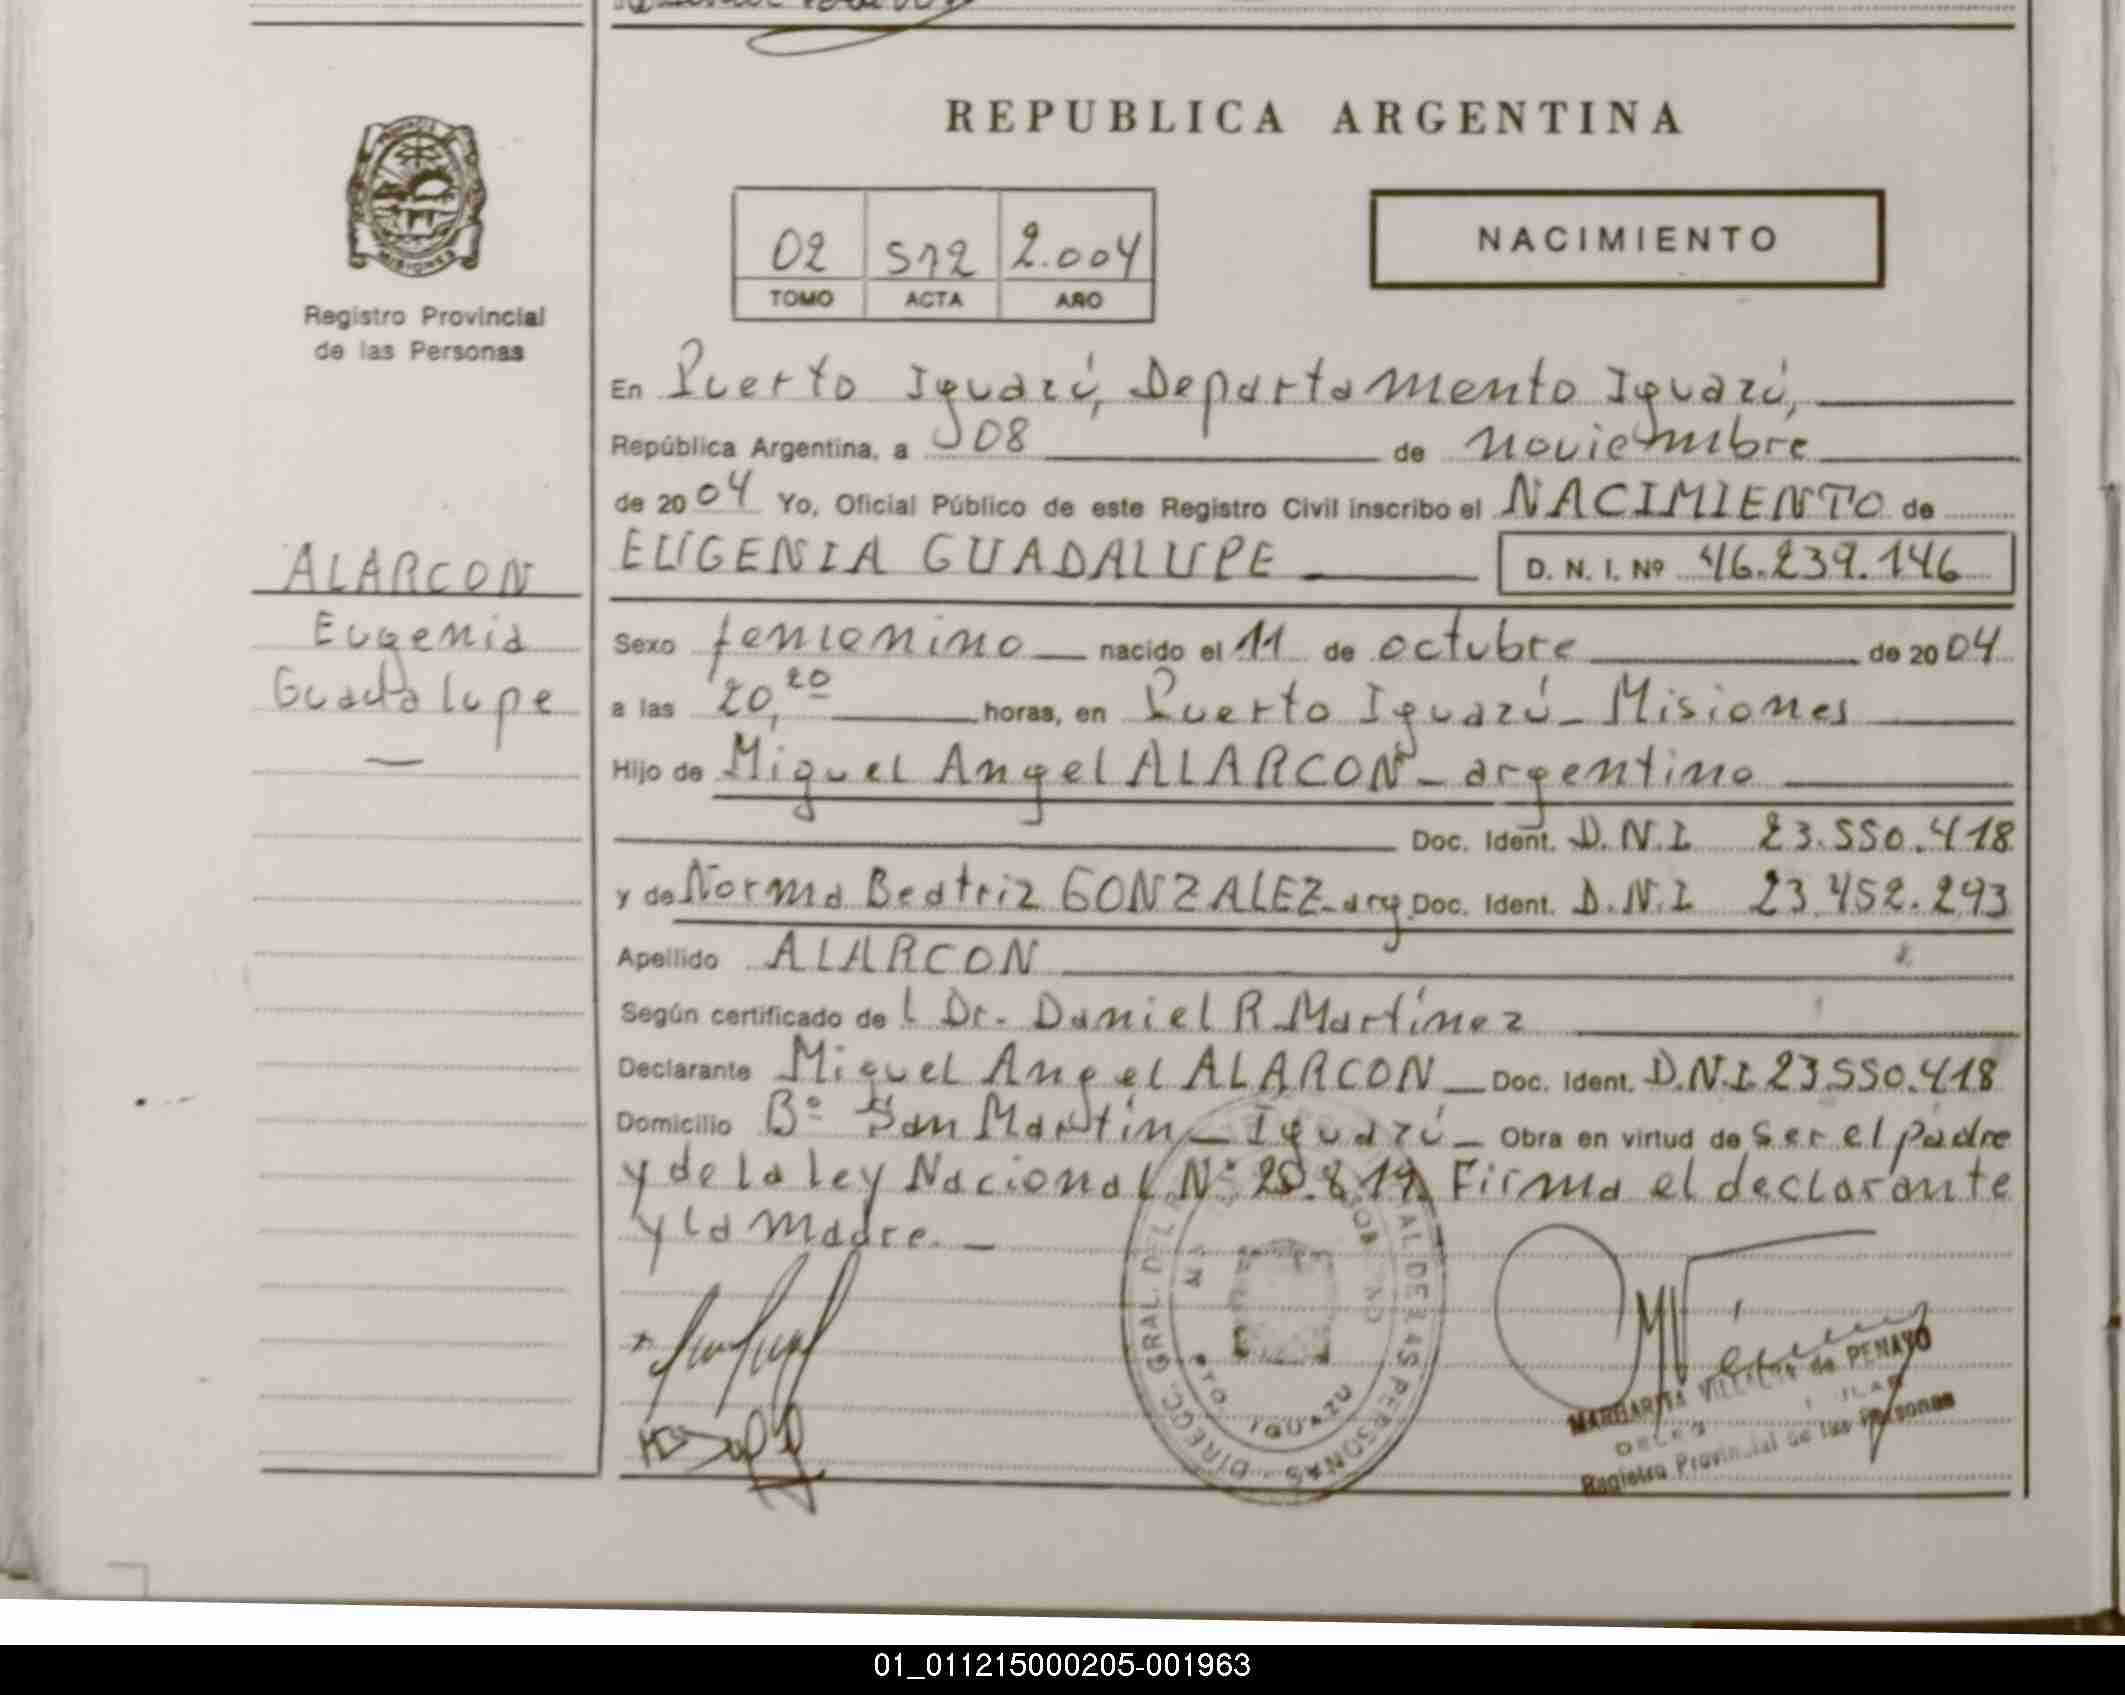 REPUBLICA ARGENTINA
MISIONES
Registro Provincial
de las Personas
02 512 2.004
TOMO ACTA AÑO
NACIMIENTO
En Puerto Iguazú, Departamento Iguazú,
República Argentina, a 08 de noviembre
de 2004 Yo, Oficial Público de este Registro Civil inscribo el NACIMIENTO de
EUGENIA GUADALUPE D. N. I. Nº 46.239.146
ALARCON
Eugenia
Guadalupe
Sexo femenino nacido el 11 de octubre de 2004
a las 20,20 horas, en Puerto Iguazú - Misiones
Hijo de Miguel Angel ALARCON - argentino
Doc. Ident. D.N.I 23.550.418
y de Norma Beatriz GONZALEZ - arg Doc. Ident. D.N.I 23.452.293
Apellido ALARCON
Según certificado del Dr. Daniel R. Martínez
Declarante Miguel Angel ALARCON Doc. Ident. D.N.I 23.550.418
Domicilio Bº San Martín - Iguazú - Obra en virtud de ser el padre
y de la ley Nacional Nº Firma el declarante
y la madre. -
DIRECC. GRAL. DEL DE LAS PERSONAS
DTO. IGUAZU
MARGARITA VILLALBA de PENAYO
Registro Provincial de las Personas
01_011215000205-001963